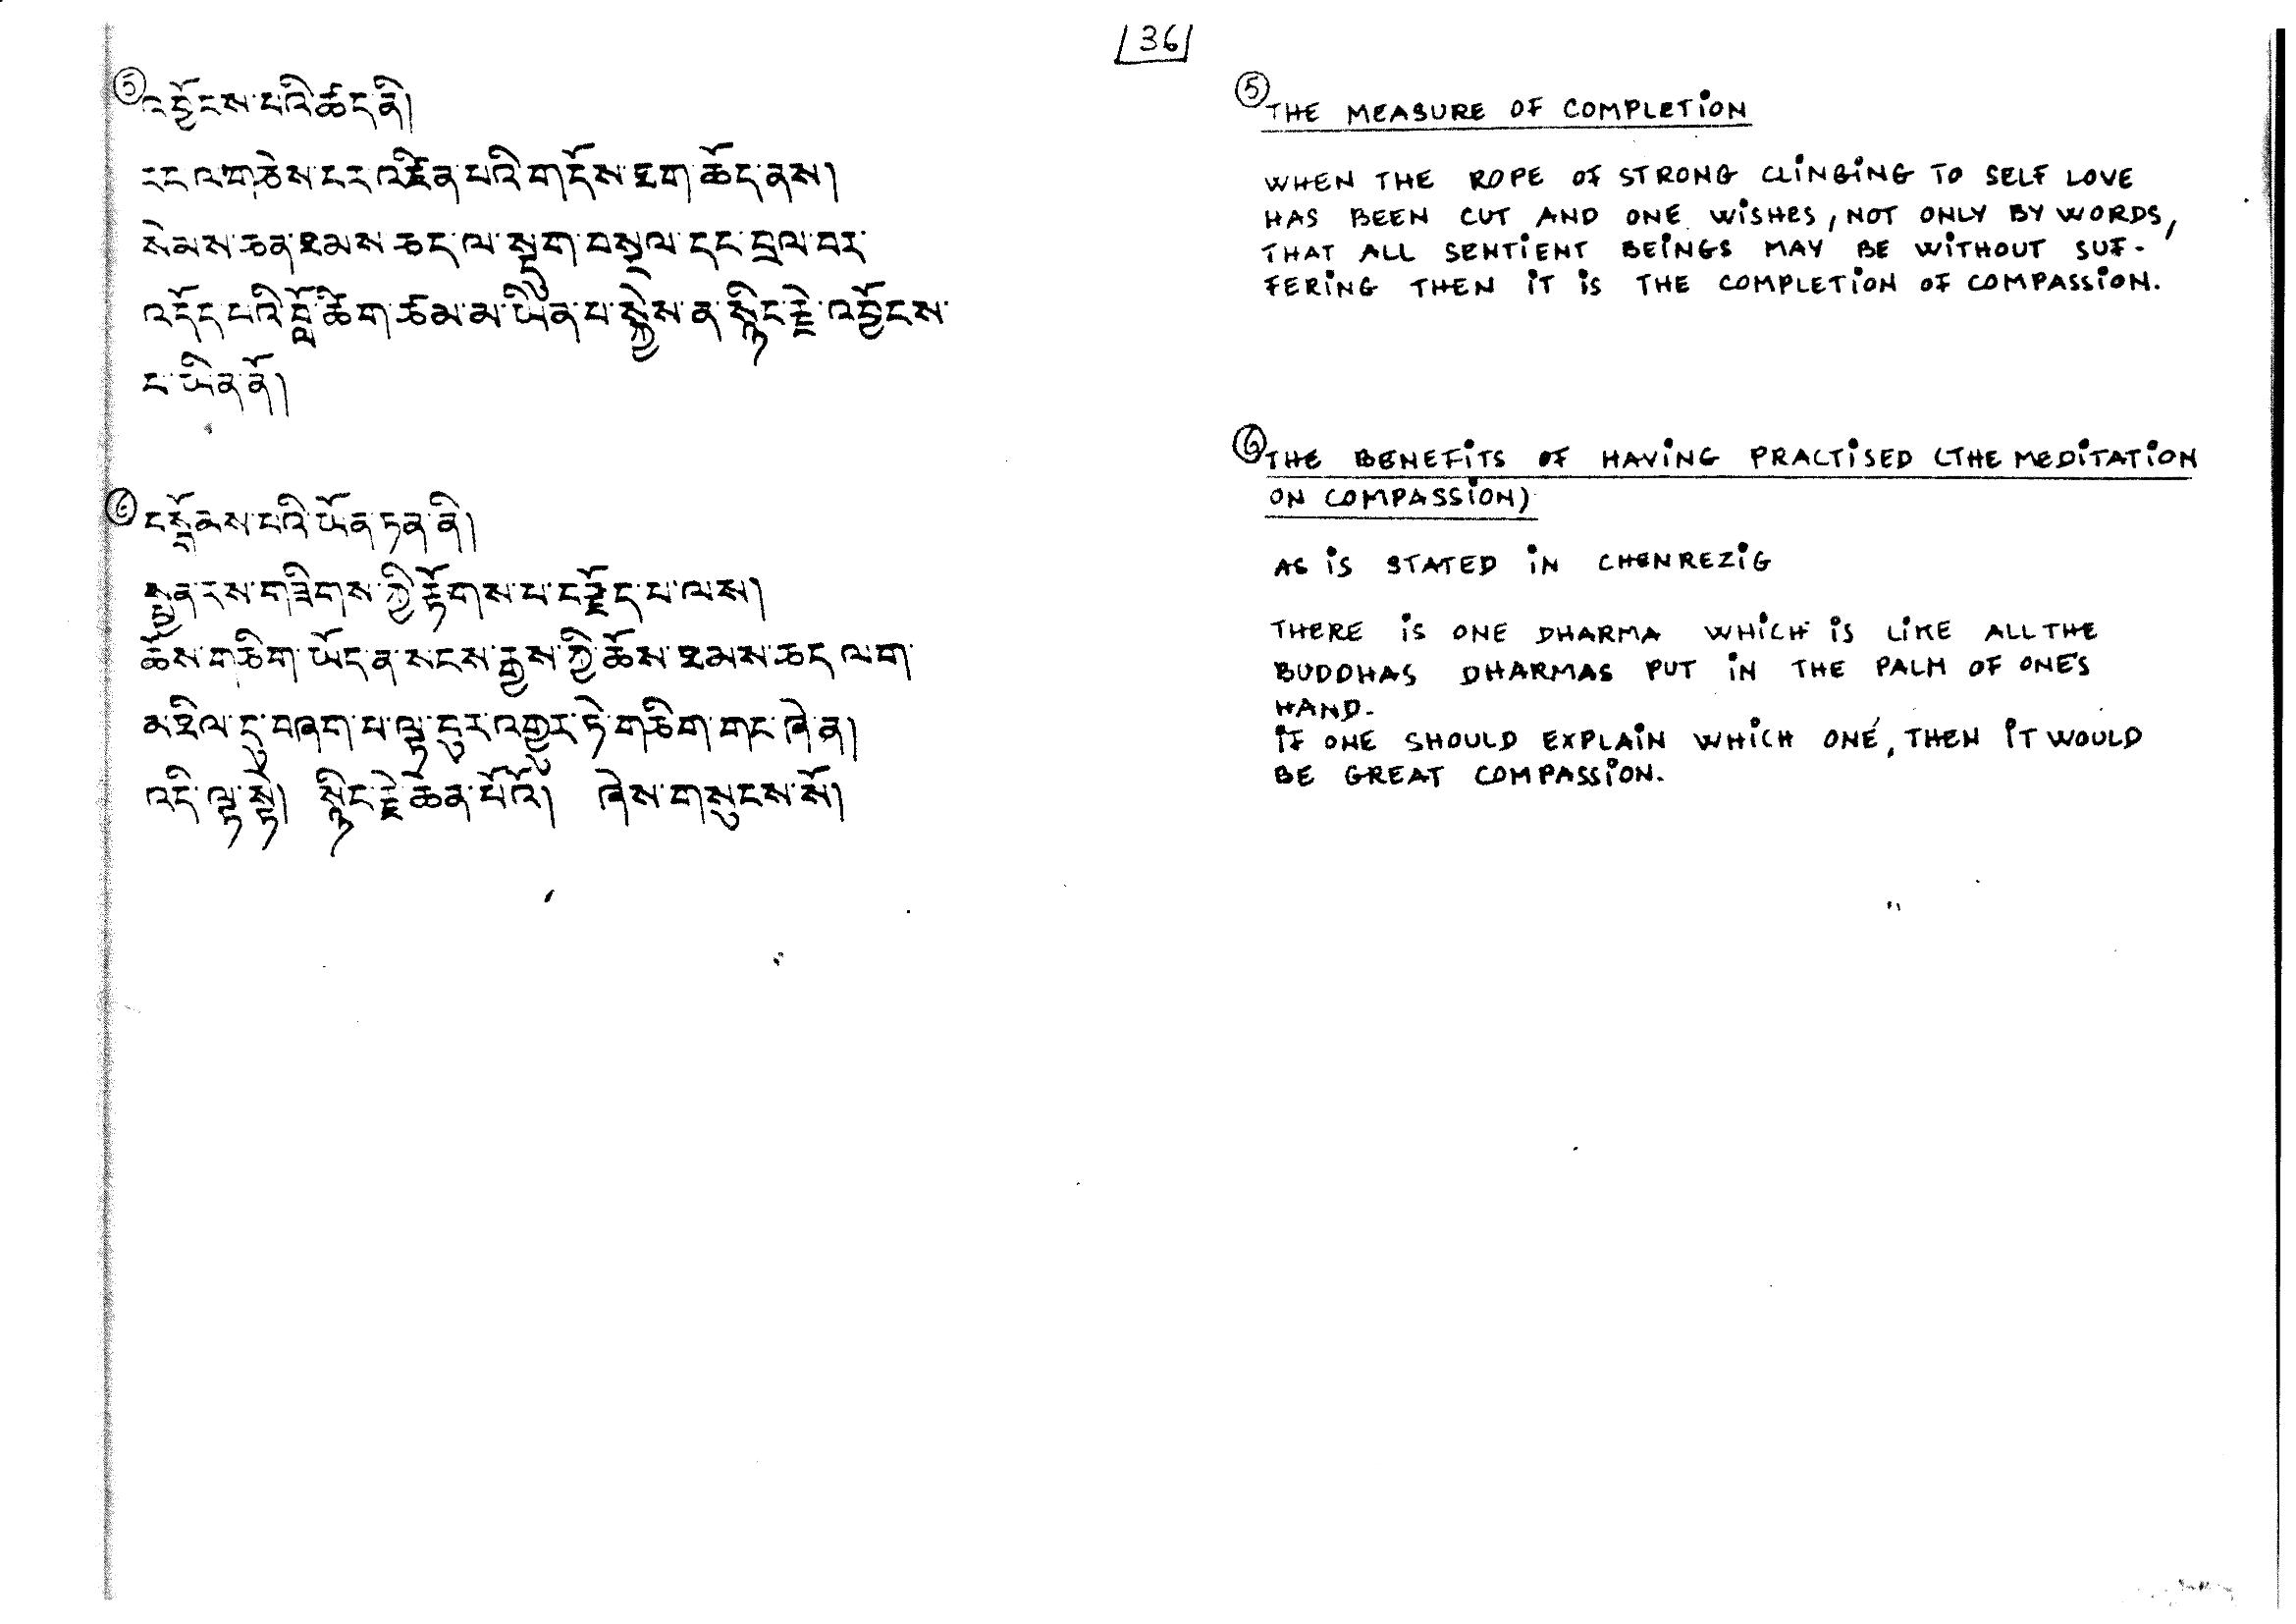 36
⑤ འབྱོངས་པའི་ཚད་ནི།
རང་ལ་གཅེས་པར་འཛིན་པའི་གདོས་ཐག་ཆོད་ནས།
སེམས་ཅན་ཐམས་ཅད་ལ་སྡུག་བསྔལ་དང་བྲལ་བར་
འདོད་པའི་བློ་ཚིག་ཙམ་མ་ཡིན་པ་སྐྱེས་ན་སྙིང་རྗེ་འབྱོངས་
པ་ཡིན་ནོ།
⑥ བསྒོམས་པའི་ཡོན་ཏན་ནི།
སྤྱན་རས་གཟིགས་ཀྱི་རྟོགས་པ་བརྗོད་པ་ལས།
ཆོས་གཅིག་ཡོད་ན་སངས་རྒྱས་ཀྱི་ཆོས་ཐམས་ཅད་ལག་
མཐིལ་དུ་བཞག་པ་ལྟ་བུར་འགྱུར་ཏེ་གཅིག་གང་ཞེ་ན།
འདི་ལྟ་སྟེ། སྙིང་རྗེ་ཆེན་པོའོ། ཞེས་གསུངས་སོ།
⑤ THE MEASURE OF COMPLETION
WHEN THE ROPE OF STRONG CLINGING TO SELF LOVE
HAS BEEN CUT AND ONE WISHES, NOT ONLY BY WORDS,
THAT ALL SENTIENT BEINGS MAY BE WITHOUT SUF-
FERING THEN IT IS THE COMPLETION OF COMPASSION.
⑥ THE BENEFITS OF HAVING PRACTISED (THE MEDITATION
ON COMPASSION)
AS IS STATED IN CHENREZIG
THERE IS ONE DHARMA WHICH IS LIKE ALL THE
BUDDHAS DHARMAS PUT IN THE PALM OF ONE'S
HAND.
IF ONE SHOULD EXPLAIN WHICH ONE, THEN IT WOULD
BE GREAT COMPASSION.